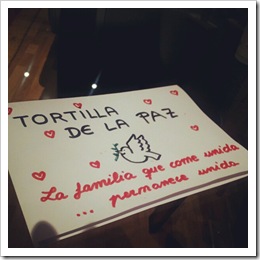 TORTILLA
DE LA PAZ
La familia que come unida
... permanece unida